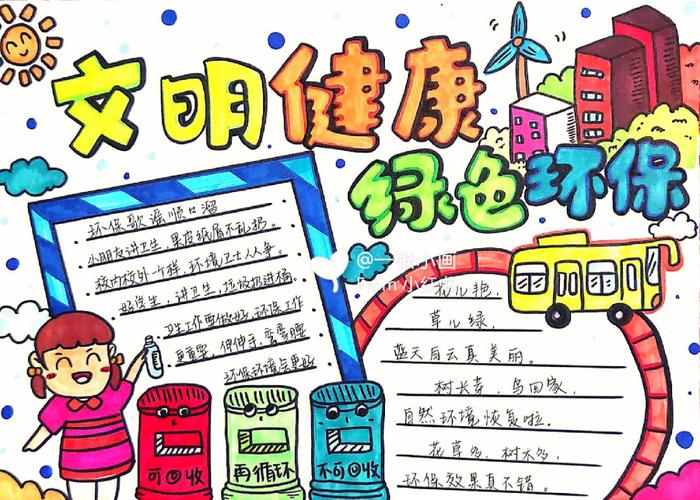 文明健康
绿色环保
环保歌谣顺口溜
小朋友讲卫生,果皮纸屑不乱扔。
校内校外一个样,环境卫士人人争。
好学生,讲卫生,垃圾扔进桶
卫生工作要做好,环保工作
更重要,伸伸手,弯弯腰
环保环境点更好
@一张小画
From 小红
花儿艳,
草儿绿,
蓝天白云真美丽。
树长青,鸟回家,
自然环境恢复啦。
花草多,树木多,
环保效果真不错。
可回收
再循环
不可回收